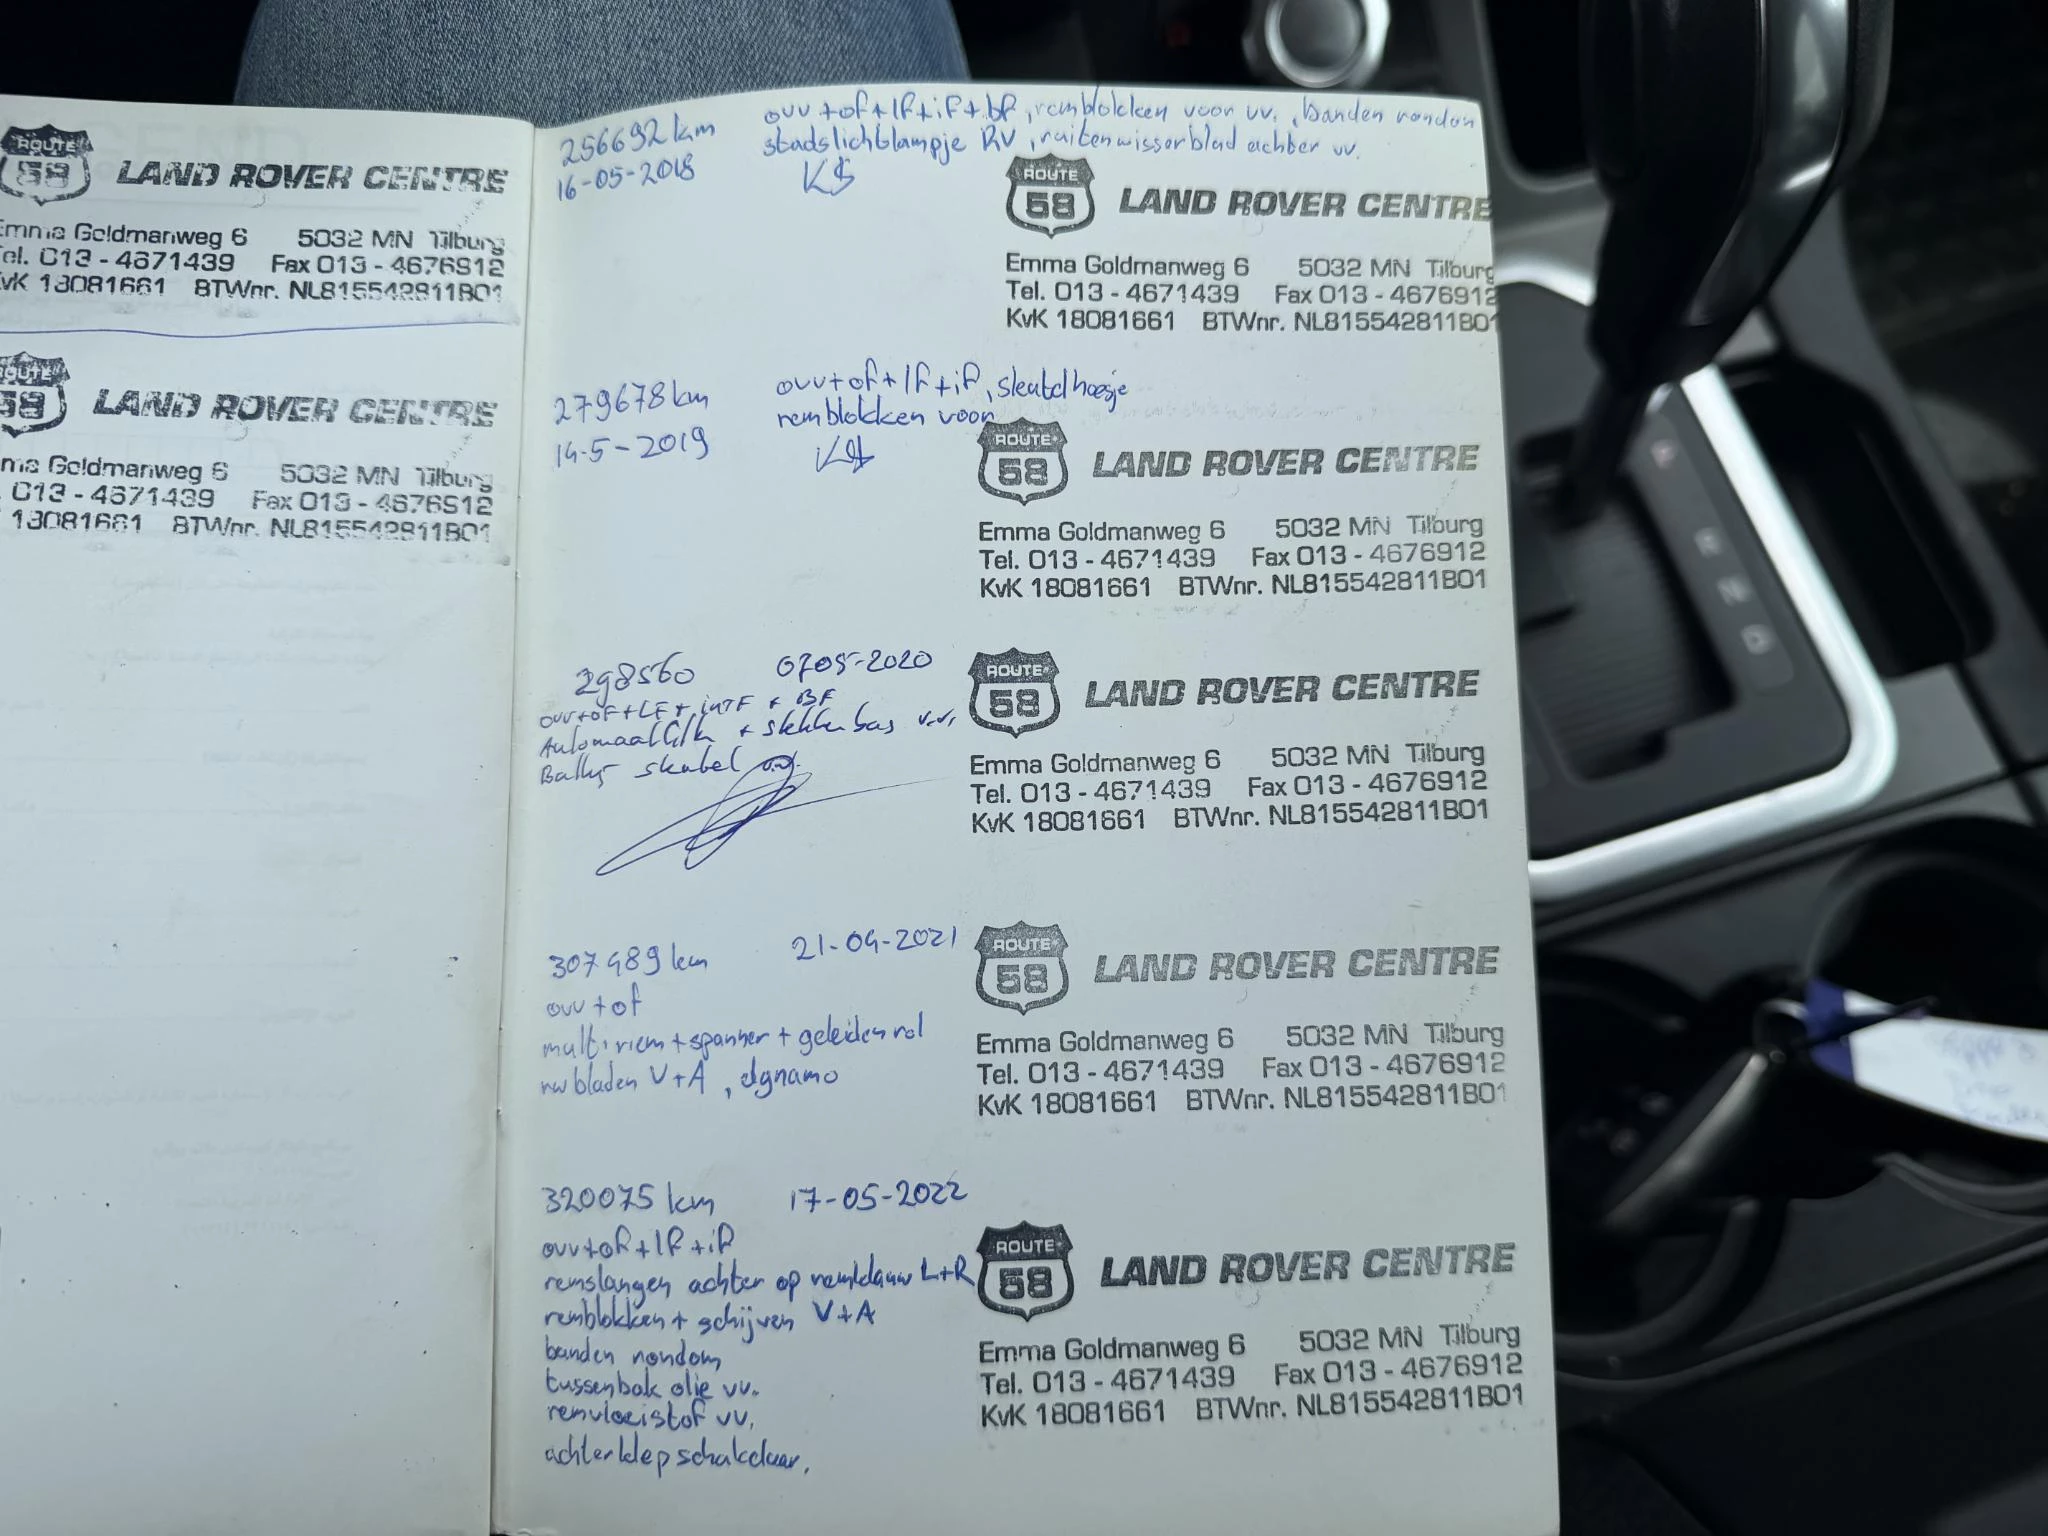 ROUTE
58
LAND ROVER CENTRE
Emma Goldmanweg 6 5032 MN Tilburg
Tel. 013 - 4671439 Fax 013 - 4676912
KvK 18081661 BTWnr. NL815542811B01
ROUTE
58
LAND ROVER CENTRE
Goldmanweg 6 5032 MN Tilburg
013 - 4671439 Fax 013 - 4676912
18081661 BTWnr. NL815542811B01
256692 km
16-05-2018
ovv + of + lf + if + bf, remblokken voor vv., banden rondom
stadslichtlampje RV, ruitenwisserblad achter vv.
ROUTE
58
LAND ROVER CENTRE
Emma Goldmanweg 6 5032 MN Tilburg
Tel. 013 - 4671439 Fax 013 - 4676912
KvK 18081661 BTWnr. NL815542811B01
279678 km
14-5-2019
ovv + of + lf + if, sleutelhoesje
remblokken voor
ROUTE
58
LAND ROVER CENTRE
Emma Goldmanweg 6 5032 MN Tilburg
Tel. 013 - 4671439 Fax 013 - 4676912
KvK 18081661 BTWnr. NL815542811B01
298560 0705-2020
ovv + of + LF + intF + BF
v.v.
ROUTE
58
LAND ROVER CENTRE
Emma Goldmanweg 6 5032 MN Tilburg
Tel. 013 - 4671439 Fax 013 - 4676912
KvK 18081661 BTWnr. NL815542811B01
307489 km 21-04-2021
ovv + of
multiriem + spanner + geleiden rol
rw bladen V+A, dynamo
ROUTE
58
LAND ROVER CENTRE
Emma Goldmanweg 6 5032 MN Tilburg
Tel. 013 - 4671439 Fax 013 - 4676912
KvK 18081661 BTWnr. NL815542811B01
320075 km 17-05-2022
ovv + of + lf + if
remslangen achter op remklauw L+R
remblokken + schijven V+A
banden rondom
tussenbak olie vv.
remvloeistof vv.
achterklep schakelaar.
ROUTE
58
LAND ROVER CENTRE
Emma Goldmanweg 6 5032 MN Tilburg
Tel. 013 - 4671439 Fax 013 - 4676912
KvK 18081661 BTWnr. NL815542811B01